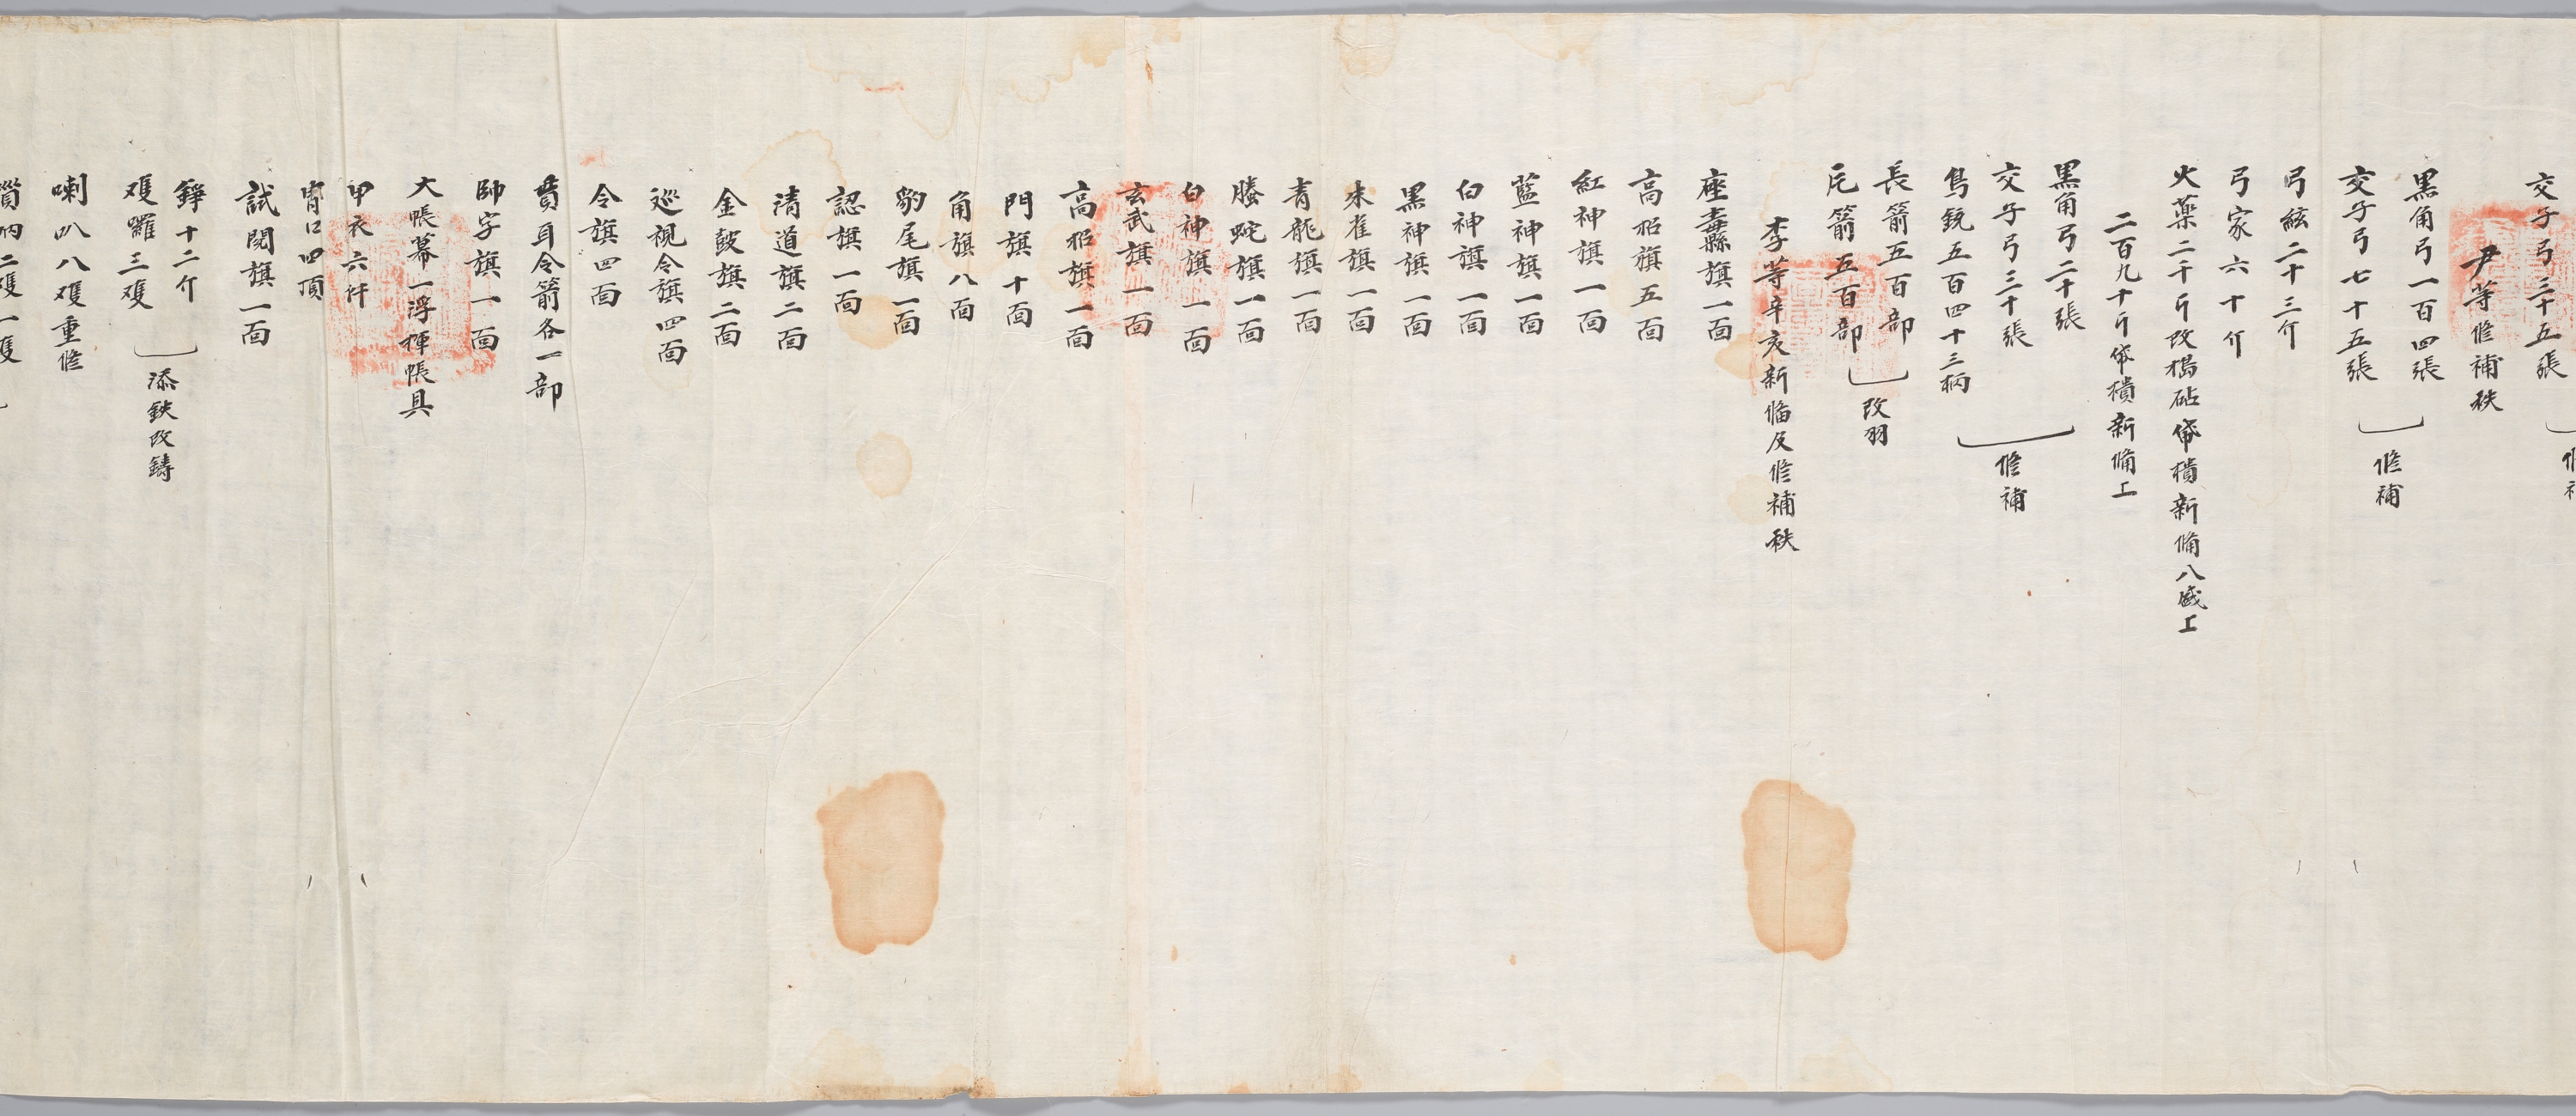 交子弓三十五張
修補
尹等修補秩
黑角弓一百四張
交子弓七十五張
修補
弓絃二十三介
弓家六十介
火薬二千斤改搗砧帒樻新備入盛工
二百九十斤帒樻新備工
黑角弓二十張
交子弓三十張
鳥銃五百四十三柄
修補
長箭五百部
片箭五百部
改羽
李等辛亥新備及修補秩
座纛旗一面
高招旗五面
紅神旗一面
藍神旗一面
白神旗一面
黑神旗一面
朱雀旗一面
青龍旗一面
螣蛇旗一面
白神旗一面
玄武旗一面
高招旗一面
門旗十面
角旗八面
豹尾旗一面
認旗一面
清道旗二面
金皷旗二面
巡視令旗四面
令旗四面
貫耳令箭各一部
帥字旗一面
大帳幕一浮揮帳具
甲衣六件
胄口四頂
試閱旗一面
錚十二介
䥯三䨥
添鉄改鑄
喇叭八䨥重修